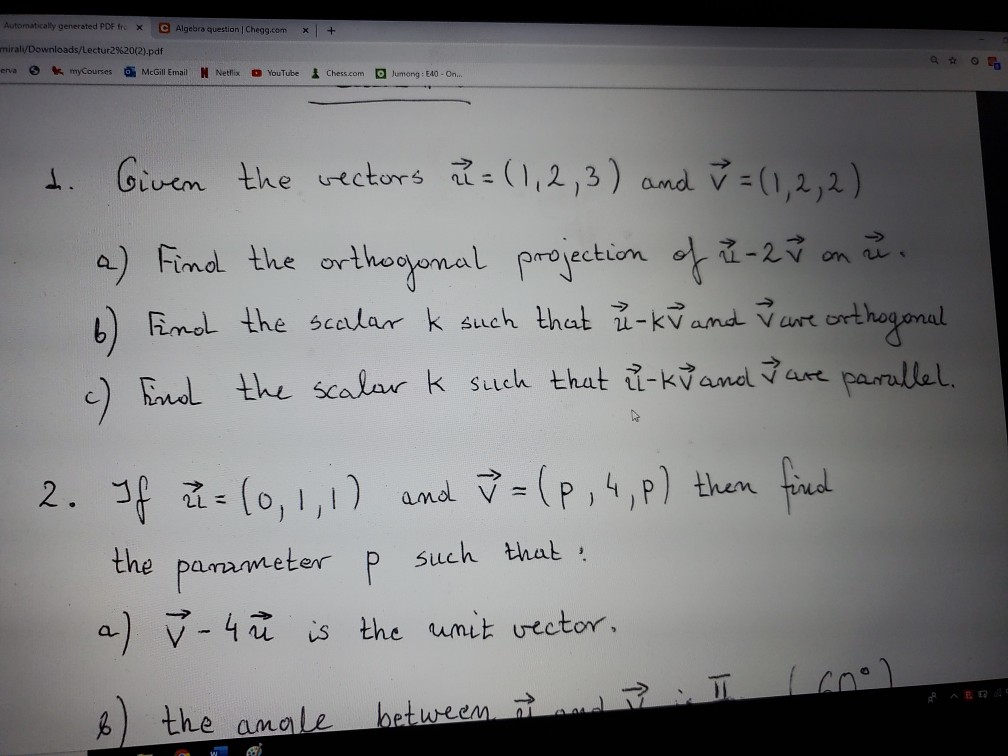 Automatically generated PDF fr. × Algebra question | Chegg.com × +
mirali/Downloads/Lectur2%20(2).pdf
erva myCourses McGill Email Netflix YouTube Chess.com Jumong : E40 - On...
1. Given the vectors u⃗ = (1,2,3) and v⃗ = (1,2,2)
a) Find the orthogonal projection of u⃗-2v⃗ on u⃗.
b) Find the scalar k such that u⃗-kv⃗ and v⃗ are orthogonal
c) Find the scalar k such that u⃗-kv⃗ and v⃗ are parallel.
2. If u⃗ = (0,1,1) and v⃗ = (p,4,p) then find
the parameter p such that:
a) v⃗ - 4u⃗ is the unit vector.
b) the angle between u⃗ and v⃗ is π (60°)